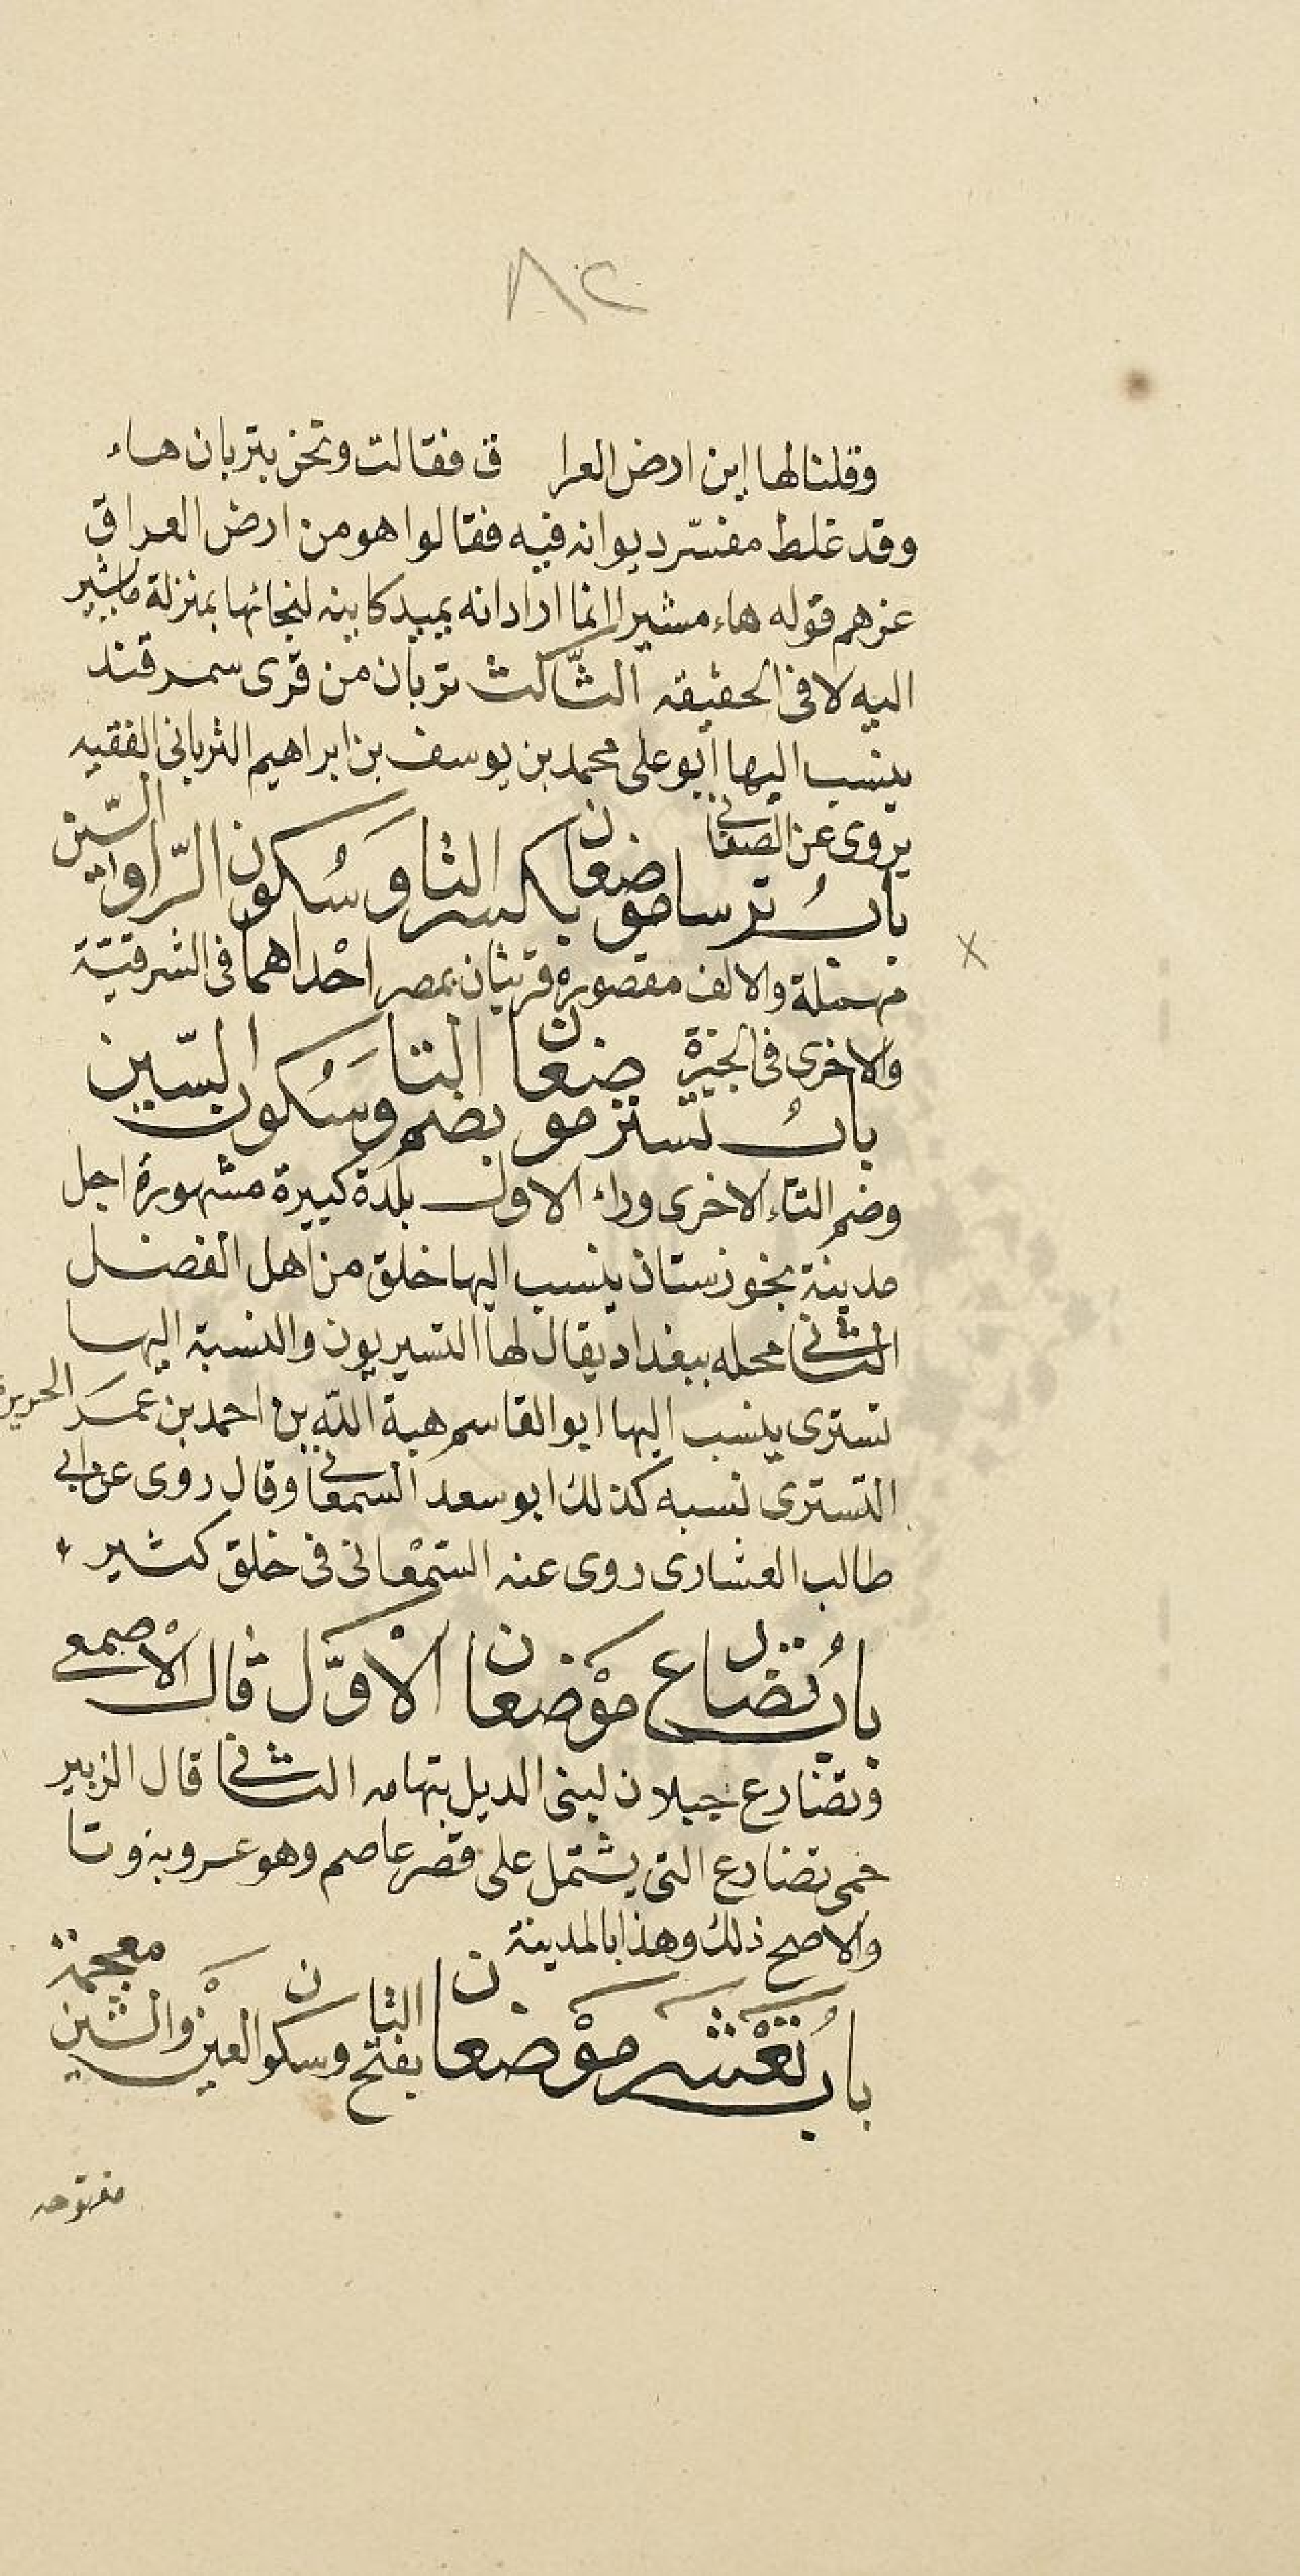 ٨٢
وقلنا لها اين ارض العرا ق فقالت ونحن بتربان هاء
وقد غلط مفسّر ديوانه فيه فقالوا هو من ارض العراق
غرهم قوله هاء مشيرا انما اراد انه يبيد كاينه لنجائها بمنزلة مايشير
اليه لا فى الحقيقه الثّالث تربان من قرى سمرقند
ينسب اليها ابو على محمد بن يوسف بن ابراهيم التربانى الفقيه
يروى عن الصغانى
بابُ ترسا موضعان بكسر التا وَسُكون الرّا والسّين
مهملة والالف مقصورة قريتان بمصر احْداهما فى الشرقيّة
والاخرى فى الجيزة
بابُ تستر موضعان بضم التا وَسُكون السّين
وضم التاء الاخرى وراء الاول بلدة كبيرة مشهورة اجل
مدينة بخوزستان ينسب اليها خلق من اهل الفضل
الثانى محله ببغداد يقال لها التستريون والنسبة اليها
تسترى ينسب اليها ابو القاسم هبة اللّه بن احمد بن عمَر الحريرى
التسترى نسبه كذلك ابو سعد السمعانى وقال روى عن ابى
طالب العشارى روى عنه السّمْعانى فى خلق كثير
بابُ تُضارع موْضعان الْاوّل قال الْاصمعى
وتضارع جبلان لبنى الديل بتهامه الثانى قال الزبير
حمى تضارع التى يشتمل على قصر عاصم وهو عروبه وتا
والاصح ذلك وهذا بالمدينة
بابُ تَغْشَر موْضعان بفتح التا وسكون الغين والشين معجمة
مفتوحه